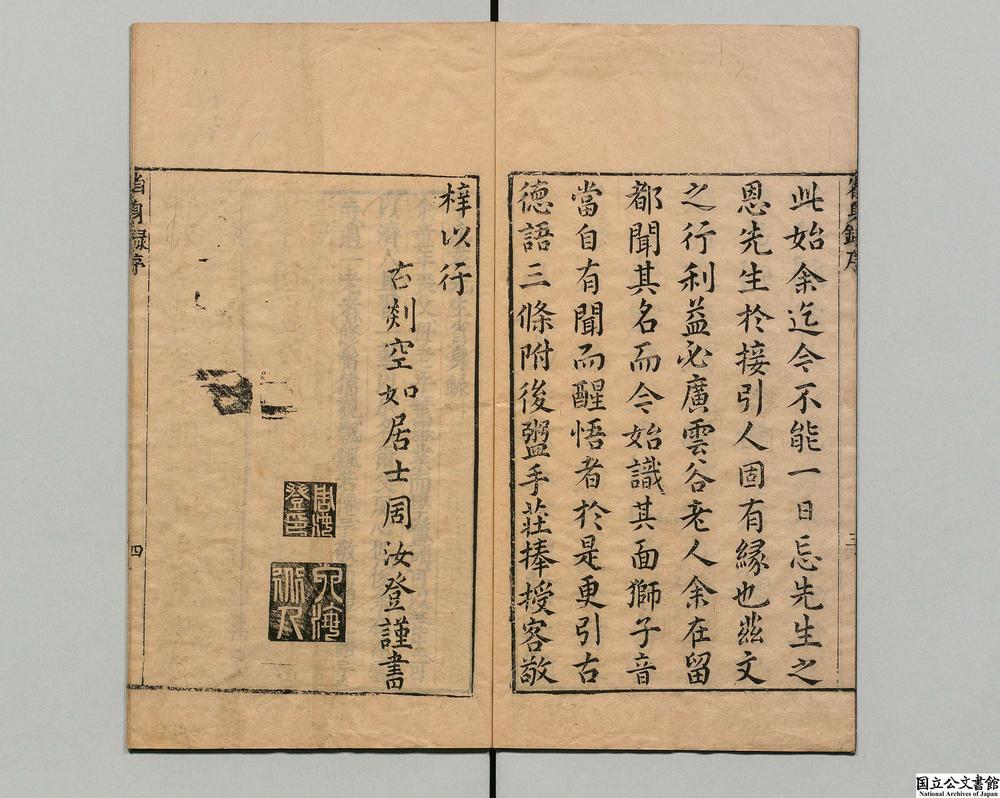 此始余迄今不能一日忘先生之
恩先生於接引人固有緣也茲文
之行利益必廣雲谷老人余在留
都聞其名而今始識其面獅子音
當自有聞而醒悟者於是更引古
德語三條附後盥手莊捧授客敬
三
梓以行
古剡空如居士周汝登謹書
周汝登印
省身錄序
四
国立公文書館
National Archives of Japan